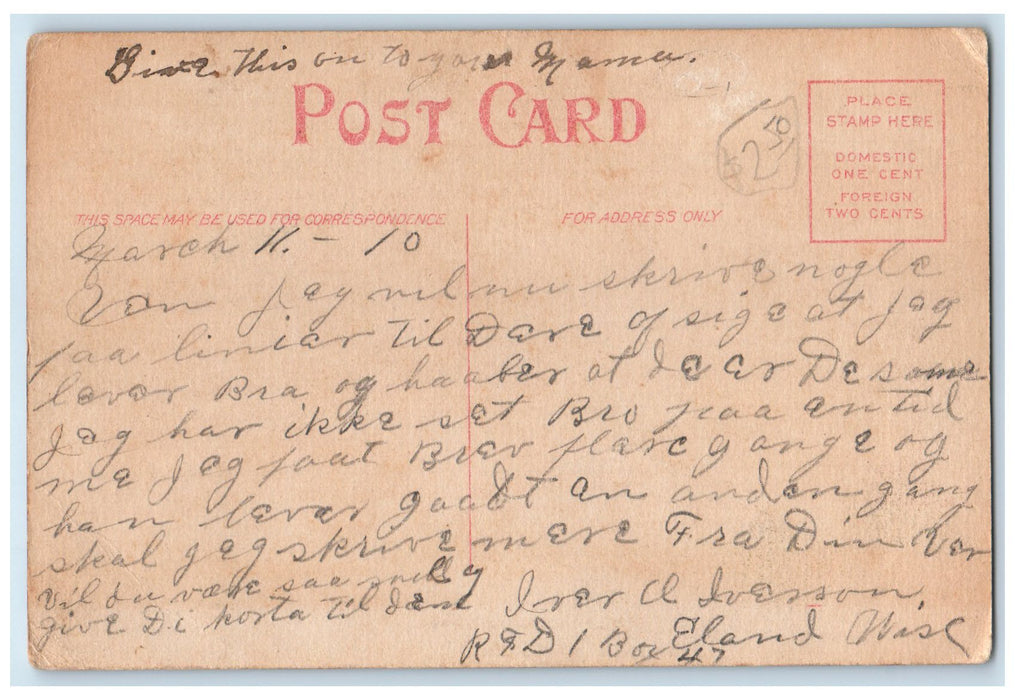 Give this on to your Mama.
POST CARD
PLACE
STAMP HERE
DOMESTIC
ONE CENT
FOREIGN
TWO CENTS
2 50
THIS SPACE MAY BE USED FOR CORRESPONDENCE
FOR ADDRESS ONLY
March 11. - 10
Ven Jeg vil nu skrive nogle
faa liniar til Dere og sige at Jeg
lever Bra og haaber at de er De same
Jeg har ikke set Bro paa en tid
me Jeg faat Brev flere gange og
han lever gaadt en anden gang
skal jeg skrive mere Fra Din Ven
vil du være saa snill og
give Di korta til dem
Iver O Iverson
R F D 1 Box 47
Eland Wisc